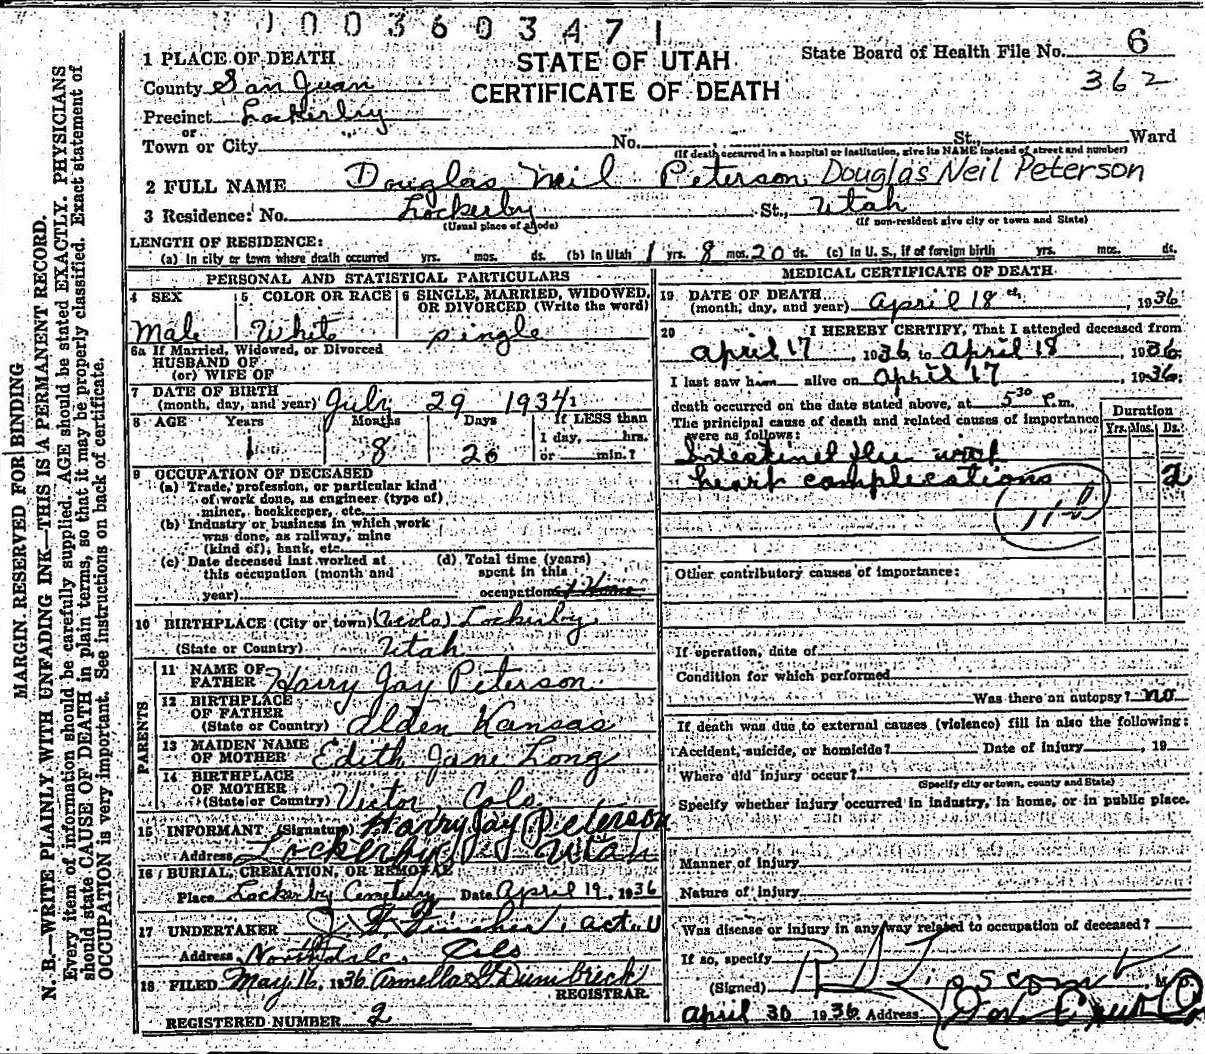 1003603471
STATE OF UTAH
CERTIFICATE OF DEATH
State Board of Health File No. 6
362
1 PLACE OF DEATH
County San Juan
Precinct Lockerby
or
Town or City No. St., Ward
(If death occurred in a hospital or institution, give its NAME instead of street and number)
2 FULL NAME Douglas Neil Peterson Douglas Neil Peterson
3 Residence: No. Lockerby St., Utah
(Usual place of abode) (If non-resident give city or town and State)
LENGTH OF RESIDENCE:
(a) In city or town where death occurred yrs. mos. ds. (b) In Utah 1 yrs. 8 mos. 20 ds. (c) In U. S., if of foreign birth yrs. mos. ds.
PERSONAL AND STATISTICAL PARTICULARS
4 SEX 5 COLOR OR RACE 6 SINGLE, MARRIED, WIDOWED, OR DIVORCED (Write the word)
Male White Single
6a If Married, Widowed, or Divorced
HUSBAND OF
(or) WIFE OF
7 DATE OF BIRTH
(month, day, and year) July 29 1934
8 AGE Years Months Days If LESS than
1 8 20 1 day, hrs.
or min.?
9 OCCUPATION OF DECEASED
(a) Trade, profession, or particular kind
of work done, as engineer (type of)
miner, bookkeeper, etc.
(b) Industry or business in which work
was done, as railway, mine
(kind of), bank, etc.
(c) Date deceased last worked at (d) Total time (years)
this occupation (month and spent in this
year) occupation
10 BIRTHPLACE (City or town) Lockerby
(State or Country) Utah
PARENTS
11 NAME OF
FATHER Harry Jay Peterson
12 BIRTHPLACE
OF FATHER
(State or Country) Alden Kansas
13 MAIDEN NAME
OF MOTHER Edith Jane Long
14 BIRTHPLACE
OF MOTHER
(State or Country) Victor, Colo
15 INFORMANT (Signature) Harry Jay Peterson
Address Lockerby Utah
16 BURIAL, CREMATION, OR REMOVAL
Place Lockerby Cemetery Date April 19, 1936
17 UNDERTAKER
Address Northdale Colo
18 FILED May 16, 1936 Dumbreck
REGISTRAR.
REGISTERED NUMBER 2
MEDICAL CERTIFICATE OF DEATH
19 DATE OF DEATH
(month, day, and year) April 18th, 1936
20 I HEREBY CERTIFY, That I attended deceased from
April 17, 1936 to April 18 1936
I last saw him alive on April 17 1936
death occurred on the date stated above, at 5 30 P.m.
The principal cause of death and related causes of importance
were as follows:
Duration
Yrs. Mos. Ds.
Intestinal flu with
heart complications 2
11-b
Other contributory causes of importance:
If operation, date of
Condition for which performed
Was there an autopsy? no
If death was due to external causes (violence) fill in also the following:
Accident, suicide, or homicide? Date of injury , 19
Where did injury occur?
(Specify city or town, county and State)
Specify whether injury occurred in industry, in home, or in public place.
Manner of injury
Nature of injury
Was disease or injury in any way related to occupation of deceased?
If so, specify
(Signed) , M. D.
April 30 1936 Address
MARGIN RESERVED FOR BINDING
N. B.—WRITE PLAINLY WITH UNFADING INK—THIS IS A PERMANENT RECORD.
Every item of information should be carefully supplied. AGE should be stated EXACTLY. PHYSICIANS
should state CAUSE OF DEATH in plain terms, so that it may be properly classified. Exact statement of
OCCUPATION is very important. See instructions on back of certificate.